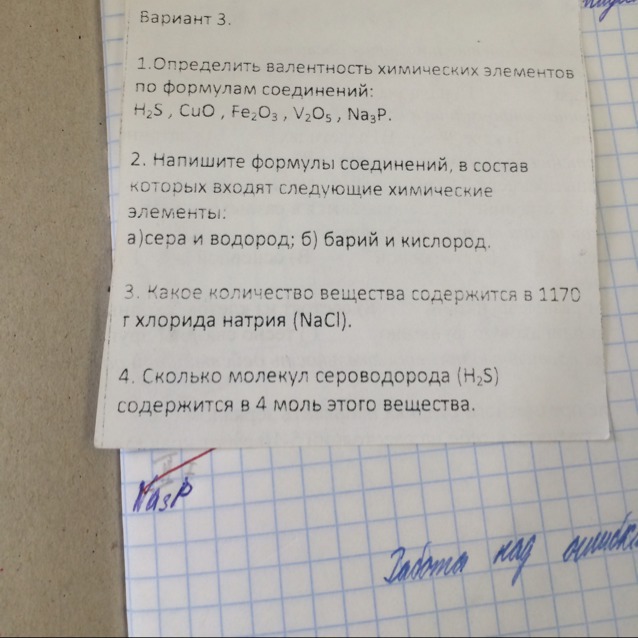 Вариант 3.
1.Определить валентность химических элементов
по формулам соединений:
H₂S , CuO , Fe₂O₃ , V₂O₅ , Na₃P.
2. Напишите формулы соединений, в состав
которых входят следующие химические
элементы:
а)сера и водород; б) барий и кислород.
3. Какое количество вещества содержится в 1170
г хлорида натрия (NaCl).
4. Сколько молекул сероводорода (H₂S)
содержится в 4 моль этого вещества.
Na₃P
Работа над ошибк